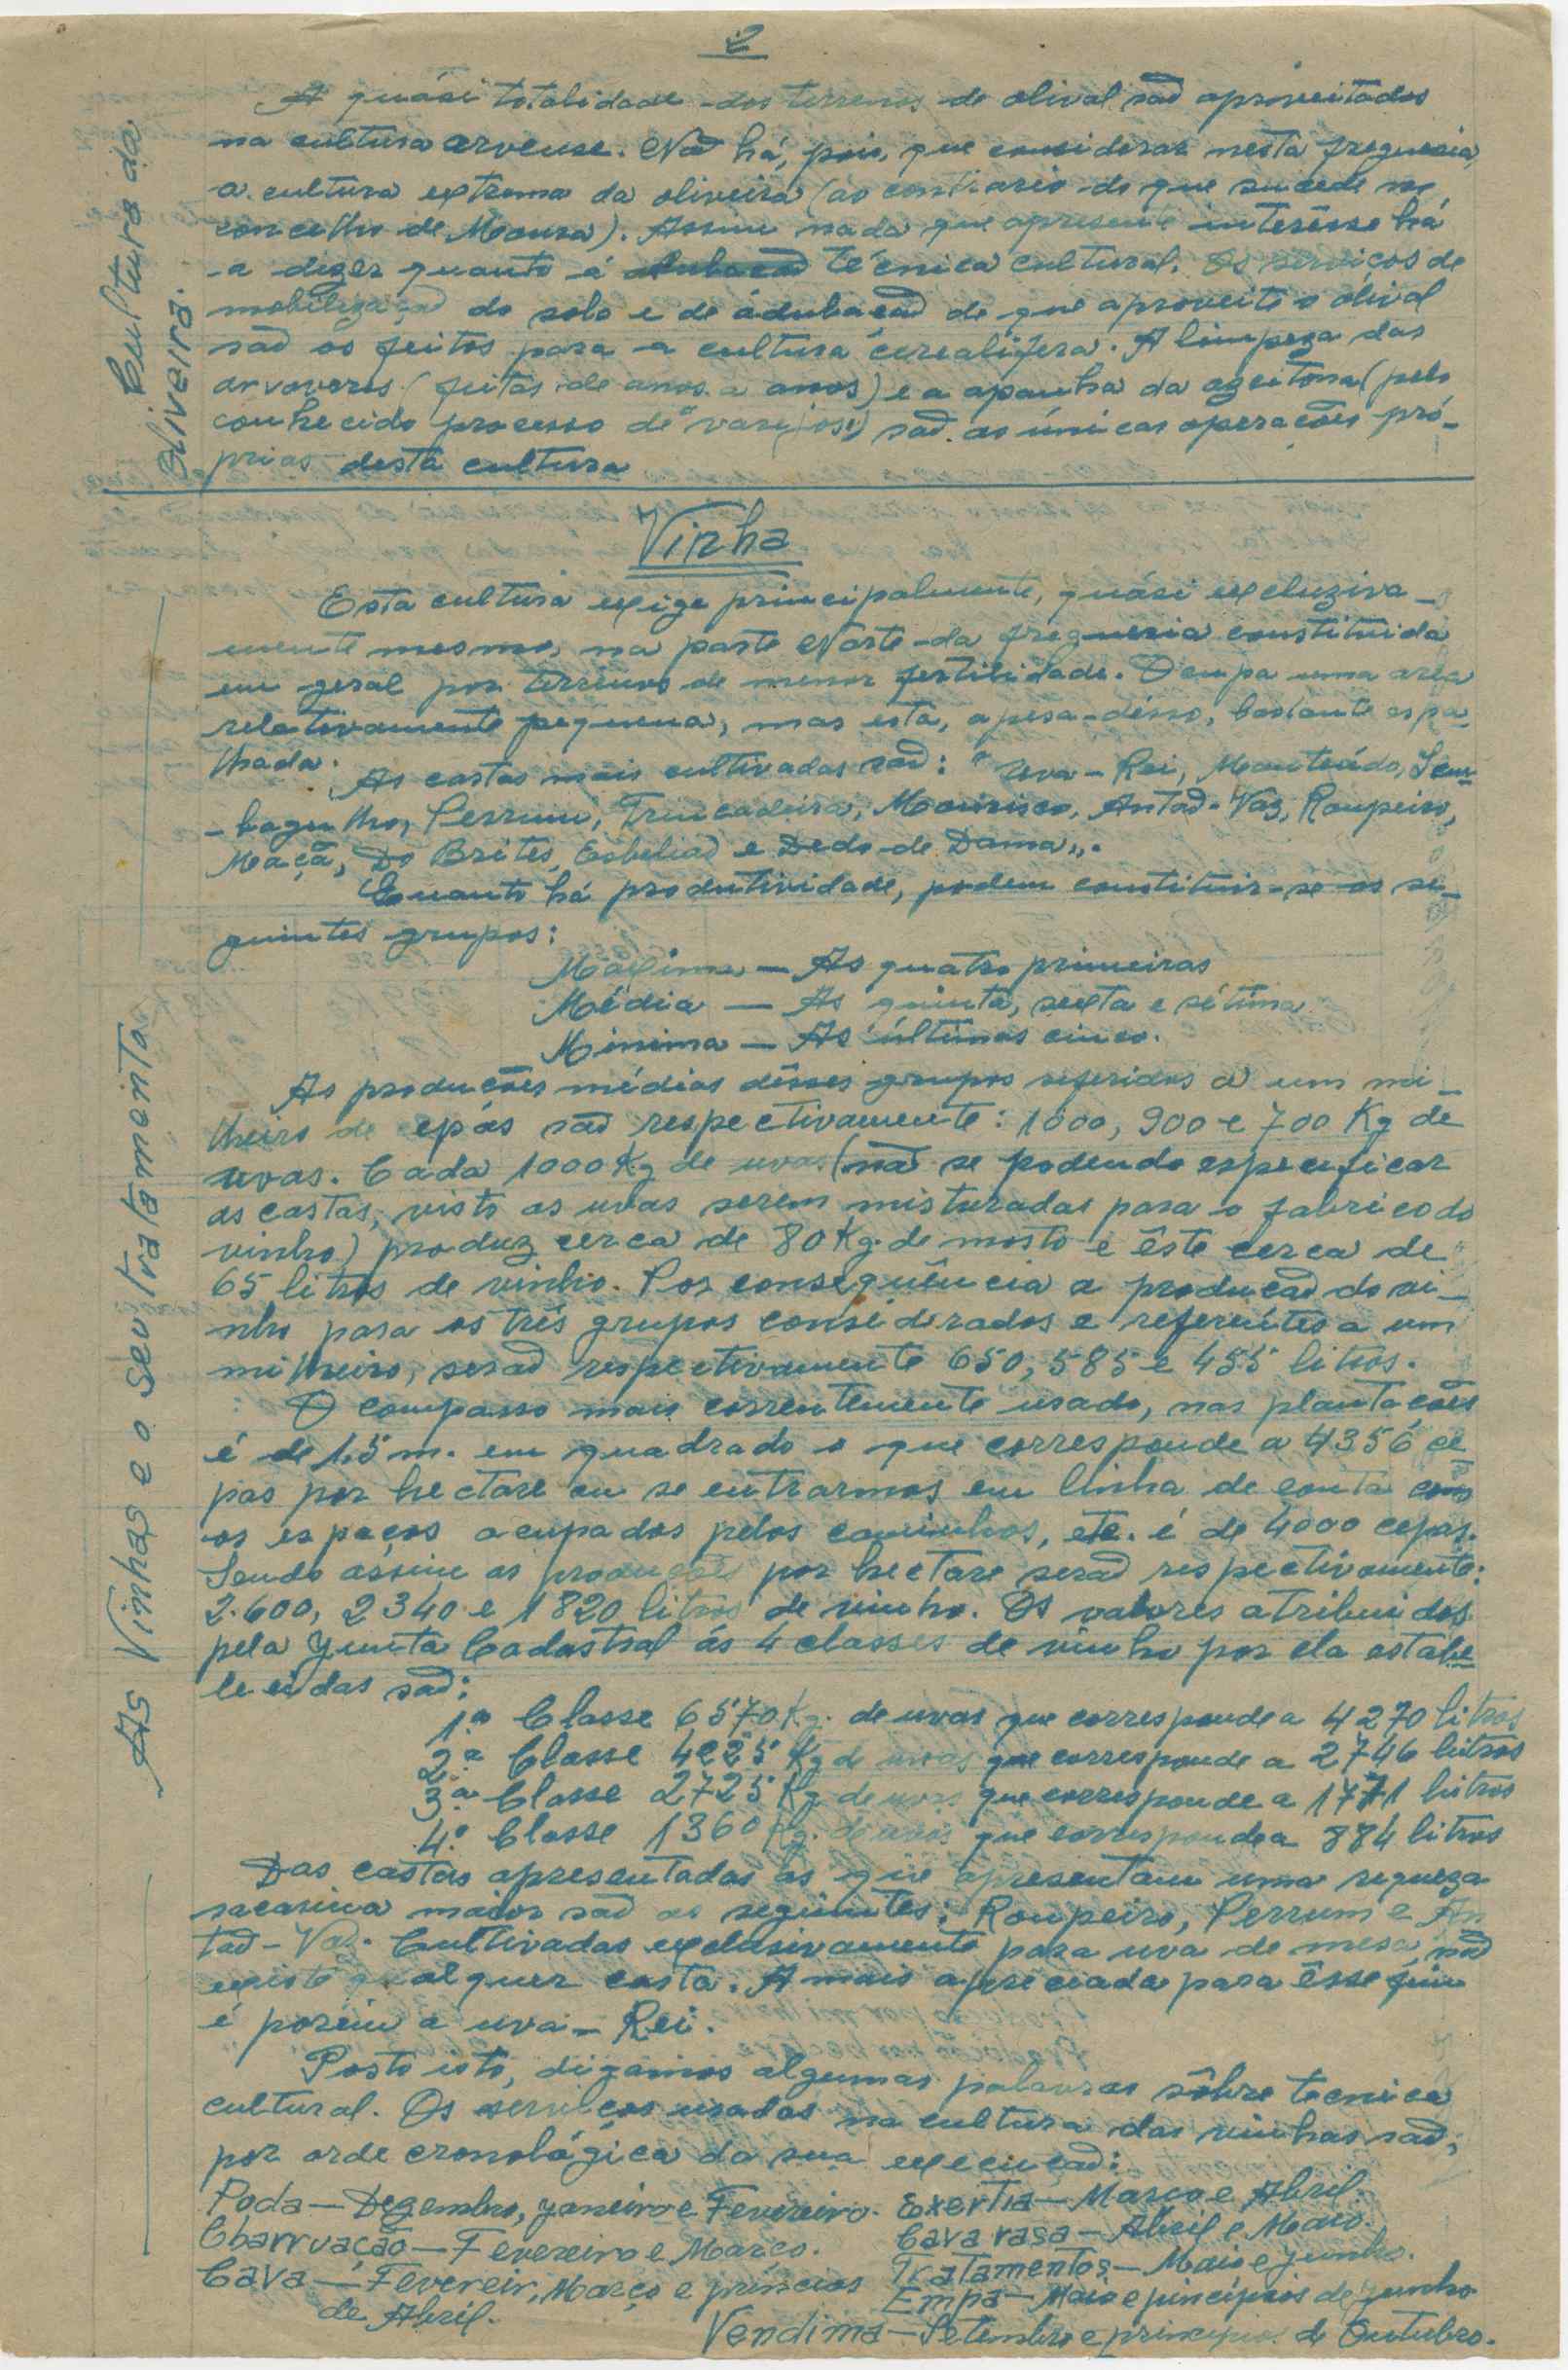 2
A quási totalidade dos terrenos de olival são aproveitados
na cultura arvense. Não há, pois, que considerar nesta freguesia
a cultura extrema da oliveira (ao contrario do que sucede no
concelho de Moura). Assim nada que apresente interêsse há
a dizer quanto á técnica cultural. Os serviços de
mobilização do solo e de adubação de que aproveita o olival
são os feitos para a cultura cerealifera. A limpeza das
arvoveres (feitas de anos a anos) e a apanha da azeitona (pelo
conhecido processo de "varejos") são as únicas operações pró-
prias desta cultura
Cultura da
Oliveira.
Vinha
Esta cultura exige principalmente, quási excluziva-
mente mesmo, na parte Norte da freguesia constituida
em geral por terrenos de menor fertilidade. Ocupa uma area
relativamente pequena, mas está, apesa-disso, bastante espa-
lhada.
As castas mais cultivadas são: "Uva-Rei, Manteúdo, Sem-
-bagulho, Perrum, Trincadeira, Mourisco, Antão-Vaz, Roupeiro,
Maçã, Do Brites, e Dedo-de Dama,,.
Quanto há produtividade, podem constituir-se os se-
guintes grupos:
Maxima — As quatro primeiras
Média — As quinta, sexta e sétima
Minima — As últimas cinco.
As produções médias dêsses grupos referidos a um mi-
lheiro de cepas são respectivamente: 1000, 900 e 700 Kg de
uvas. Cada 1000 Kg de uvas (não se podendo especificar
as castas, visto as uvas serem misturadas para o fabrico do
vinho) produz cerca de 80 Kg. de mosto e êste cerca de
65 litros de vinho. Por conseguência a produção do vi-
nho para os três grupos considerados e referentes a um
milheiro, serão respectivamente 650, 585 e 455 litros.
O compasso mais correntemente usado, nas plantações
é de 1,5 m. em quadrado o que corresponde a 4356 ce
pas por hectare ou se entrarmos em linha de conta com
os espaços ocupados pelos caminhos, etc. é de 4000 cepas.
Sendo assim as produções por hectare serão respectivamente:
2.600, 2340 e 1820 litros de vinho. Os valores atribuidos
pela Junta Cadastral ás 4 classes de vinho por ela estabe-
lecidas são:
1.ª Classe 6570 Kg. de uvas que corresponde a 4270 litros
2.ª Classe 4225 Kg de uvas que corresponde a 2746 litros
3.ª Classe 2725 Kg de uvas que corresponde a 1771 litros
4.ª Classe 1360 Kg. de uvas que corresponde a 884 litros
Das castas apresentadas as que apresentam uma riqueza
sacarina maior são as seguintes: Roupeiro, Perrum e An
tão-Vaz. Cultivadas exclusivamente para uva de mesa, não
existe qualquer casta. A mais apreciada para êsse fim
é porém a uva-Rei.
Posto isto, digamos algumas palavras sôbre tecnica
cultural. Os serviços usados na cultura das vinhas são,
por orde cronológica da sua execução:
Poda — Dezembro, Janeiro e Fevereiro.
Charruação — Fevereiro e Março.
Cava — Fevereir, Março e princios
de Abril.
Exertia — Março e Abril.
Cava rasa — Abril e Maio.
Tratamentos — Maio e Junho.
Empa — Maio e principios de Junho
Vendima — Setembro e principios de Outubro.
As Vinhas e o Seu tratamento